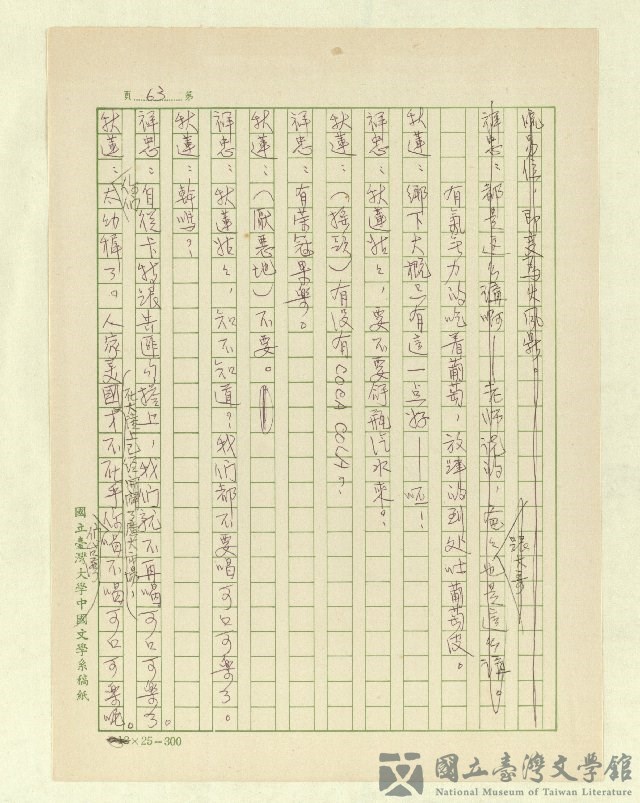 第 63 頁
流易位,即變為失風鼎。
祥忠:都是這么講啊——老師說的,爸々也是這么講。
跟大哥
有氣无力的吃着葡萄,放肆的到处吐葡萄皮。
秋蓮:鄉下大概只有這一点好——呸!
祥忠:秋蓮姑々,要不要開瓶汽水來?
秋蓮:(搖頭)有沒有COCA COLA?
祥忠:有榮冠果樂。
秋蓮:(厭惡地)不要。
祥忠:秋蓮姑々,知不知道?我們都不要喝可口可樂了。
秋蓮:幹嗎?
祥忠:自從卡特跟共匪勾搭上,我們就不再喝可口可樂了。
秋蓮:太幼稚了。人家美國才不在乎你喝不喝可口可樂呢。
國立臺灣大學中國文學系稿紙
12×25—300
國立臺灣文學館
National Museum of Taiwan Literature